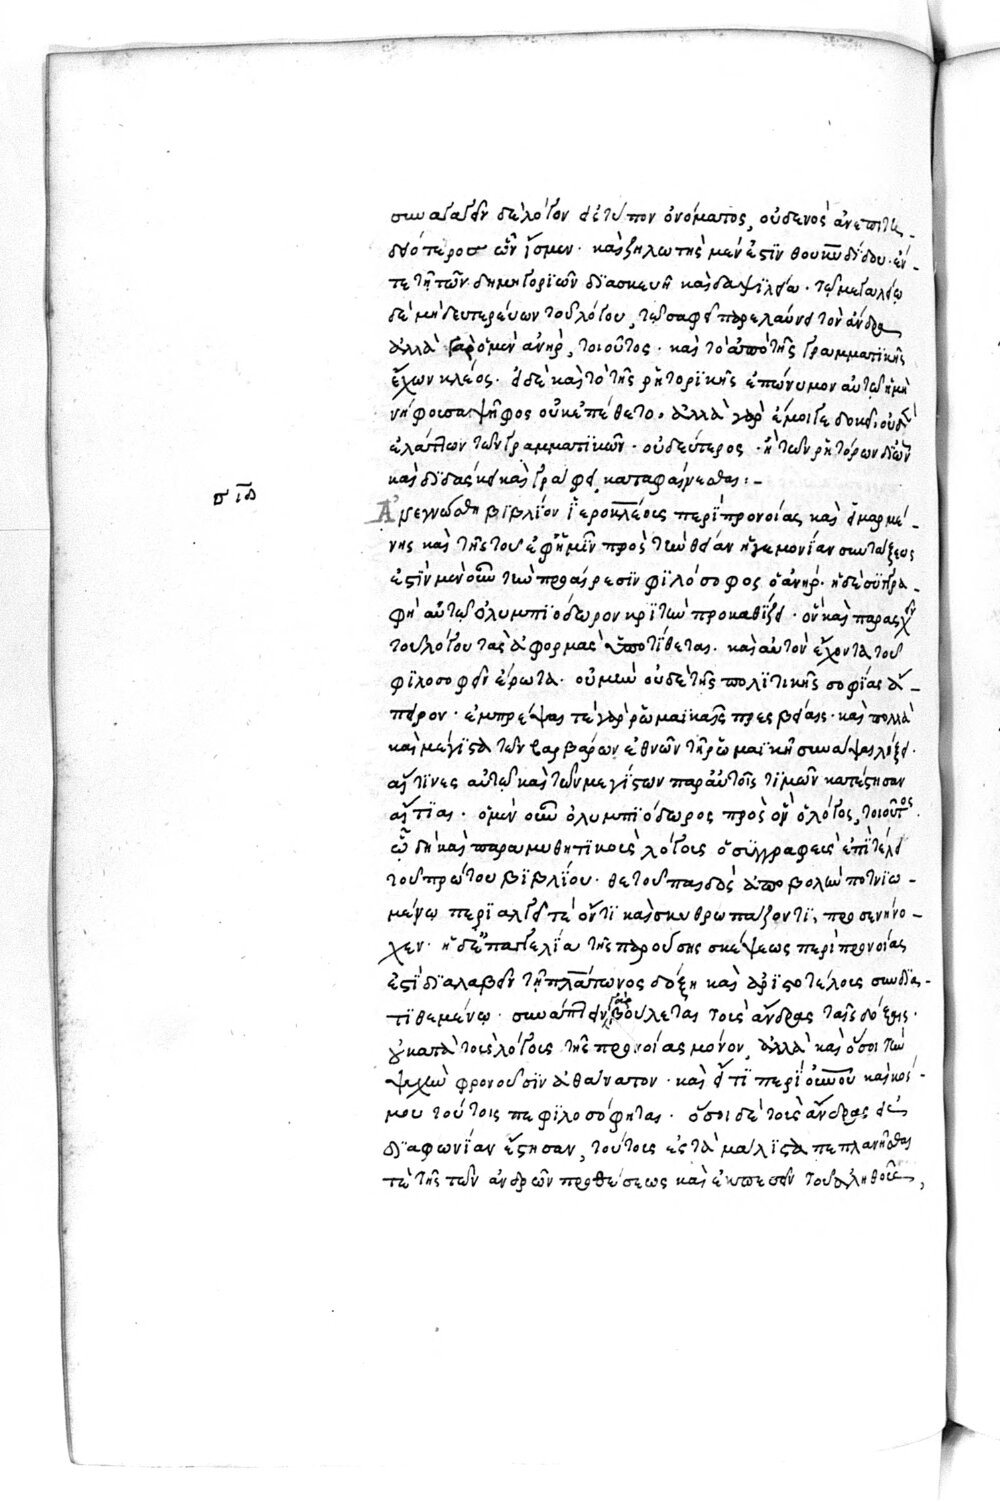 συναγαγεῖν δὲ λόγον εἰς τύπον ὀνόματος, οὐδενὸς ἀνεπιτη-
δειότερος ὧν ἴσμεν· καὶ ζηλωτὴς μέν ἐστιν θουκυδίδου· ἔν
τε τῇ τῶν δημηγοριῶν διασκευῇ καὶ δαψιλείᾳ· τῷ μεγαλείῳ
δὲ μὴ δευτερεύων τοῦ λόγου, τῷ σαφεῖ παρελαύνει τὸν ἄνδρα
ἀλλὰ γὰρ ὁ μὲν ἀνὴρ, τοιοῦτος· καὶ τὸ ἀπὸ τῆς γραμματικῆς
ἔχων κλέος· εἰ δὲ καὶ τὸ τῆς ῥητορικῆς ἐπώνυμον αὐτῷ ἡ μὴ
νήφουσα ψῆφος οὐκ ἐπέθετο, ἀλλὰ γὰρ ἔμοιγε δοκεῖ οὐδὲν
ἐλάττων τῶν γραμματικῶν· οὐ δεύτερος· ἢ τῶν ῥητόρων δι' ὧν
καὶ διδάσκει καὶ γράφει, καταφαίνεσθαι:-
σιδ
Ἀνεγνώσθη βιβλίον ἱεροκλέους περὶ προνοίας καὶ εἱμαρμέ-
νης καὶ τῆς τοῦ ἐφ' ἡμῖν πρὸς τὴν θείαν ἡγεμονίαν συντάξεως
ἐστὶν μὲν οὖν τὴν προαίρεσιν φιλόσοφος ὁ ἀνήρ· ἡ δὲ συγγρα-
φὴ αὐτῷ ὀλυμπιόδωρον κριτὴν προκαθίζει· ὃν καὶ παρασχεῖν
τοῦ λόγου τὰς ἀφορμὰς ὑποτίθεται· καὶ αὐτὸν ἔχοντα τοῦ
φιλοσοφεῖν ἔρωτα· οὐ μὴν οὐδὲ τῆς πολιτικῆς σοφίας ἄ-
πειρον· ἐμπρέψαι τε γὰρ ῥωμαϊκαῖς πρεσβείαις· καὶ πολλὰ
καὶ μέγιστα τῶν βαρβάρων ἐθνῶν τῇ ῥωμαϊκῇ συνάψαι λήξει·
αἵτινες αὐτῷ καὶ τῶν μεγίστων παρ' αὐτοῖς τιμῶν κατέστησαν
αἴτιαι· ὁ μὲν οὖν ὀλυμπιόδωρος πρὸς ὃν ὁ λόγος, τοιοῦτος·
ᾧ δὴ καὶ παραμυθητικοὺς λόγους ὁ συγγραφεὺς ἐπὶ τέλει
τοῦ πρώτου βιβλίου· θετοῦ παιδὸς ἀποβολὴν ποτνιω-
μένῳ περιαλγεῖ τε ὄντι καὶ σκυθρωπάζοντι, προσενήνο-
χεν· ἡ δὲ ἐπαγγελία τῆς παρούσης σκέψεως περὶ προνοίας
ἐστὶ διαλαβεῖν τῇ πλάτωνος δόξῃ καὶ ἀριστοτέλους συνδια-
τιθεμένῳ· συνάπτειν γὰρ βούλεται τοὺς ἄνδρας ταῖς δόξαις·
οὐ κατὰ τοὺς λόγους τῆς προνοίας μόνον, ἀλλὰ καὶ ὅσοι τὴν
ψυχὴν φρονοῦσιν ἀθάνατον· καὶ εἴ τι περὶ οὐρανοῦ καὶ κόσ-
μου τούτοις πεφιλοσόφηται· ὅσοι δὲ τοὺς ἄνδρας εἰς
διαφωνίαν ἔστησαν, τούτους ἐς τὰ μάλιστα πεπλανῆσθαι
τε τῆς τῶν ἀνδρῶν προθέσεως καὶ ἐκπεσεῖν τοῦ ἀληθοῦς,